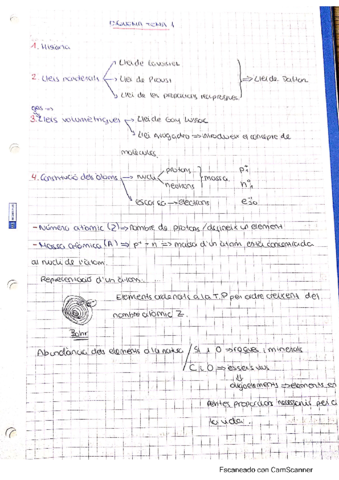 ESQUEMA TEMA 1
1. Història
Llei de Lavoisier
2. Lleis ponderals Llei de Proust ⇒ Llei de Dalton
Llei de les proporcions recíproques
gas
3. Lleis volumètriques Llei de Gay Lussac
Llei Avogadro ⇒ introdueix el concepte de
molècules.
4. Constitució dels àtoms nucli protons massa p+
neutrons n
escorça → electrons e-
- Número atòmic (Z) ⇒ nombre de protons / defineix un element
- Massa atòmica (A) ⇒ p+ + n ⇒ massa d'un àtom, està concentrada
al nucli de l'àtom.
Representació d'un àtom.
Elements ordenats a la T.P per ordre creixent del
nombre atòmic Z.
Bohr
Abundància dels elements a la natura Si i O ⇒ roques i minerals
C i O ⇒ essers vius
⇒ elements en
petites proporcions necessaris per a
la vida.
Escaneado con CamScanner